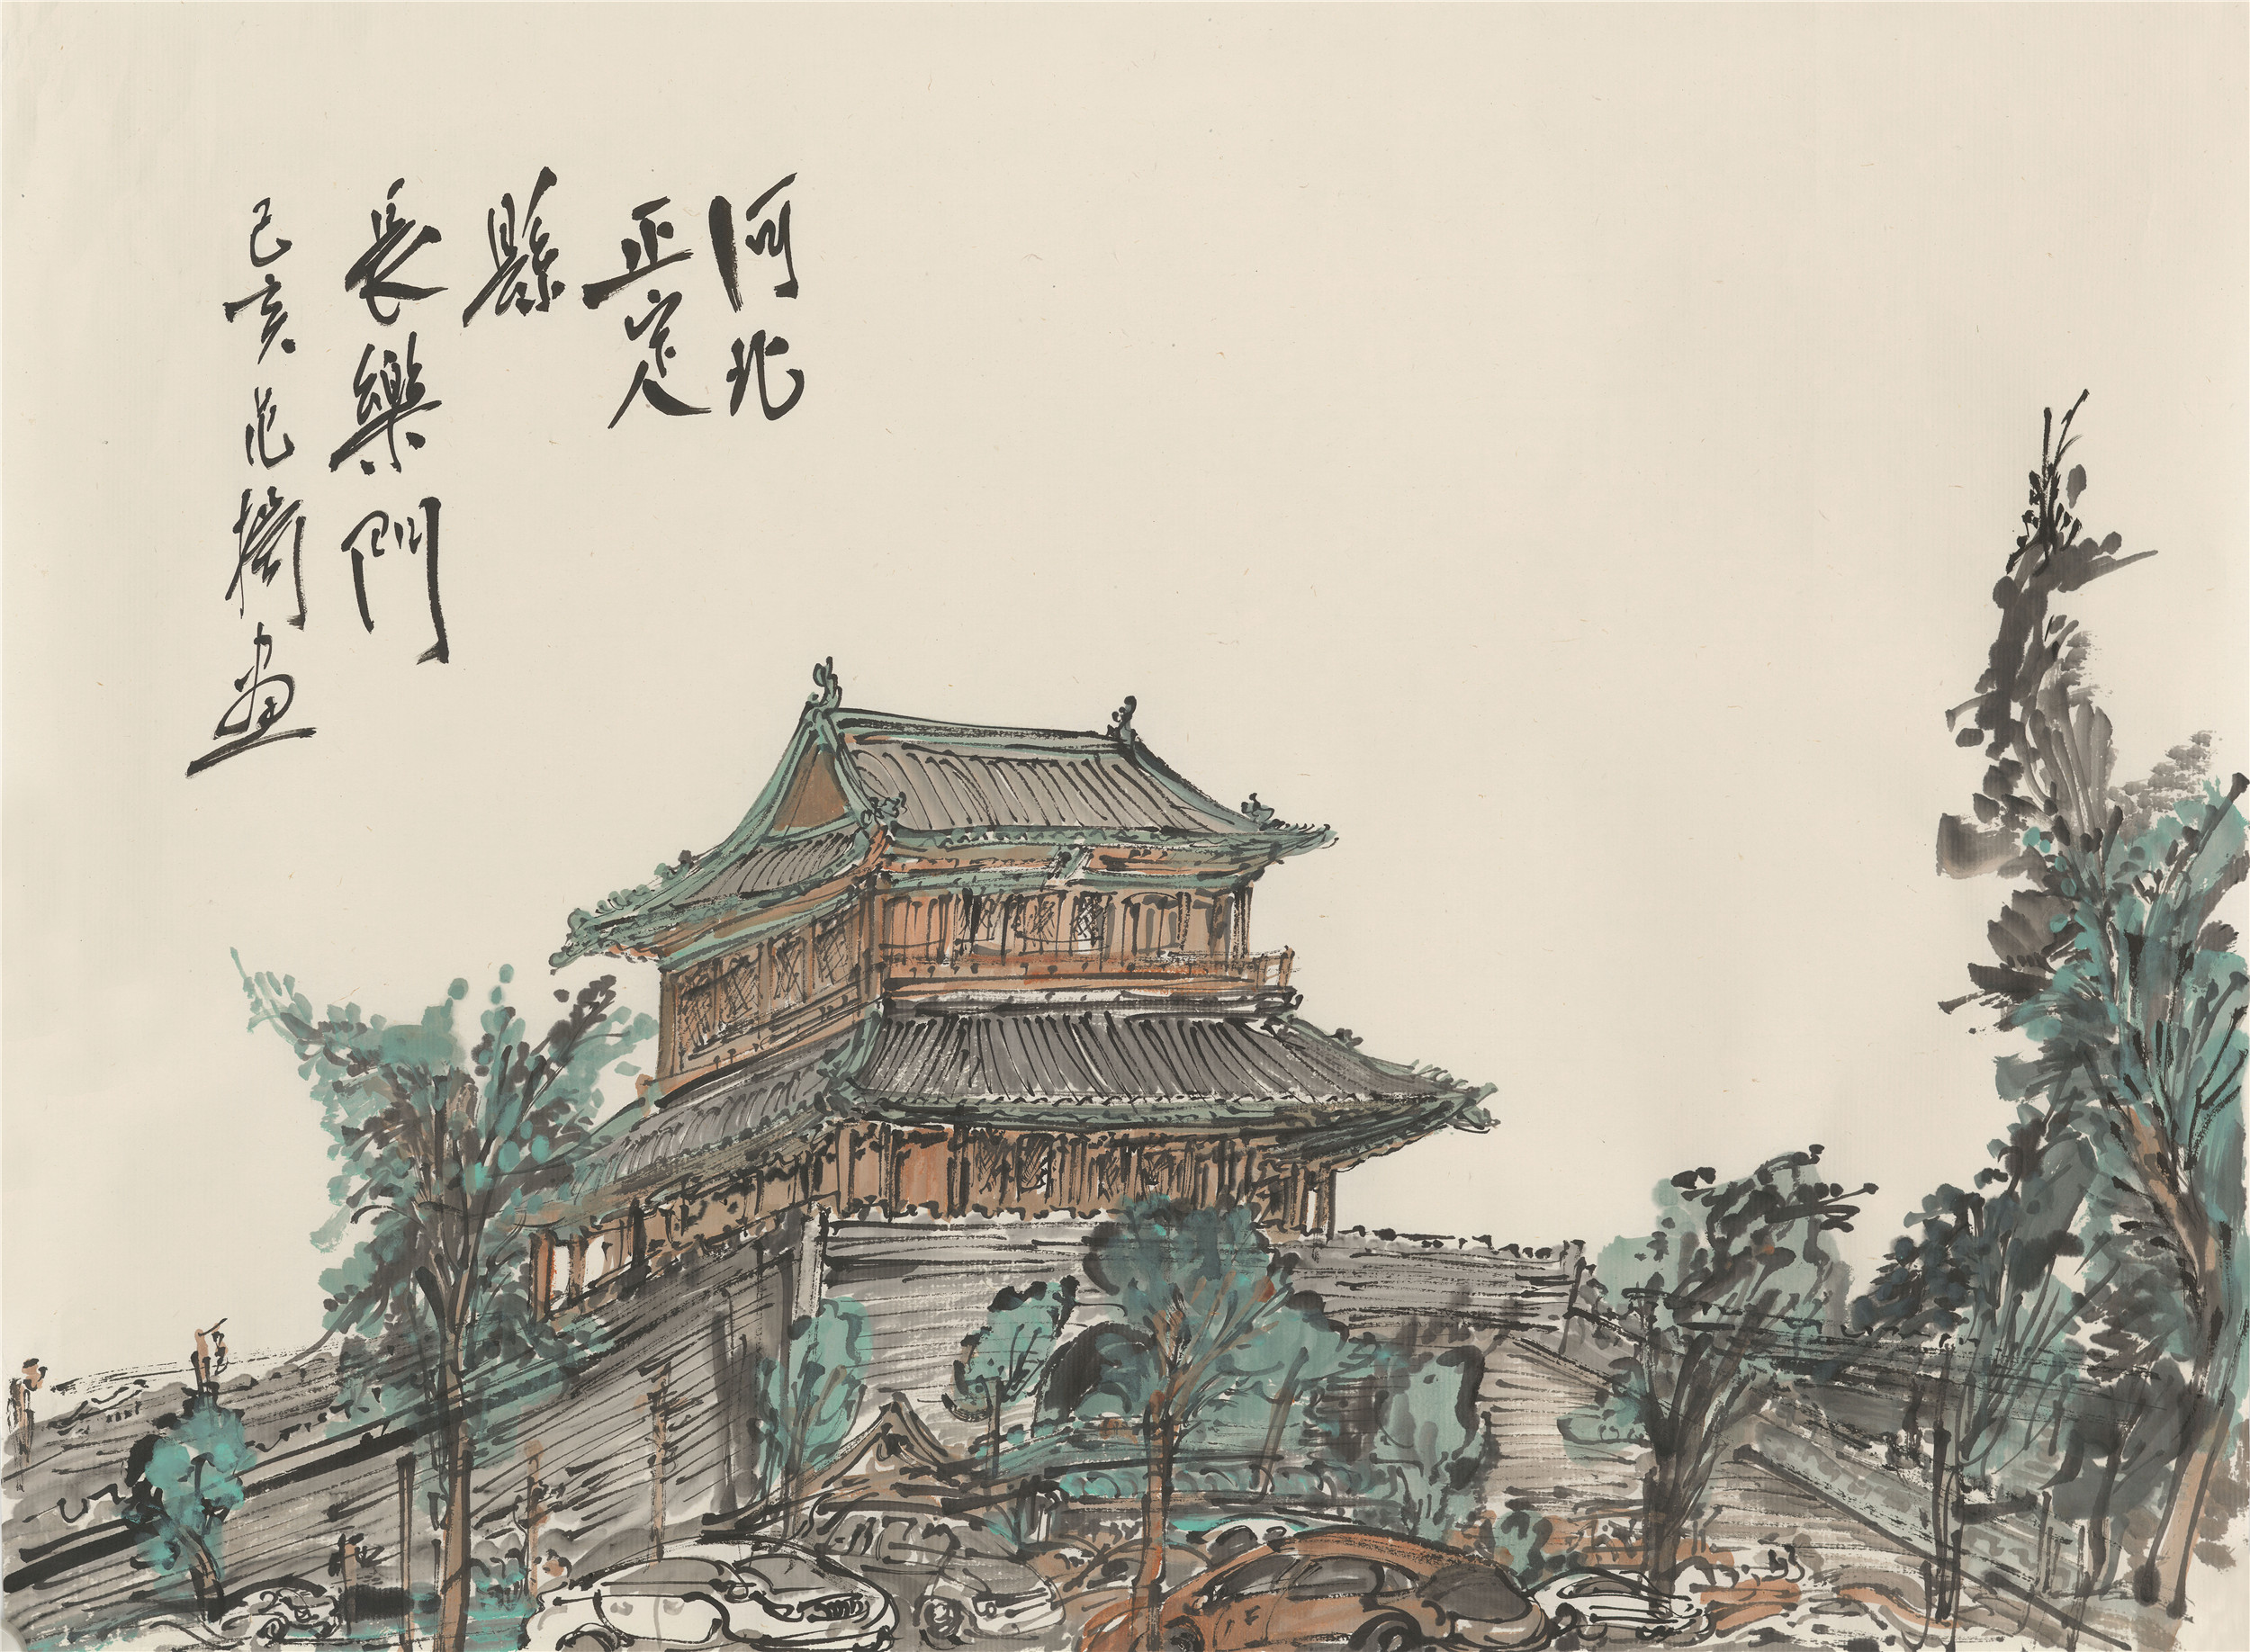 河北
正定
縣
長樂門
己亥范揚畫